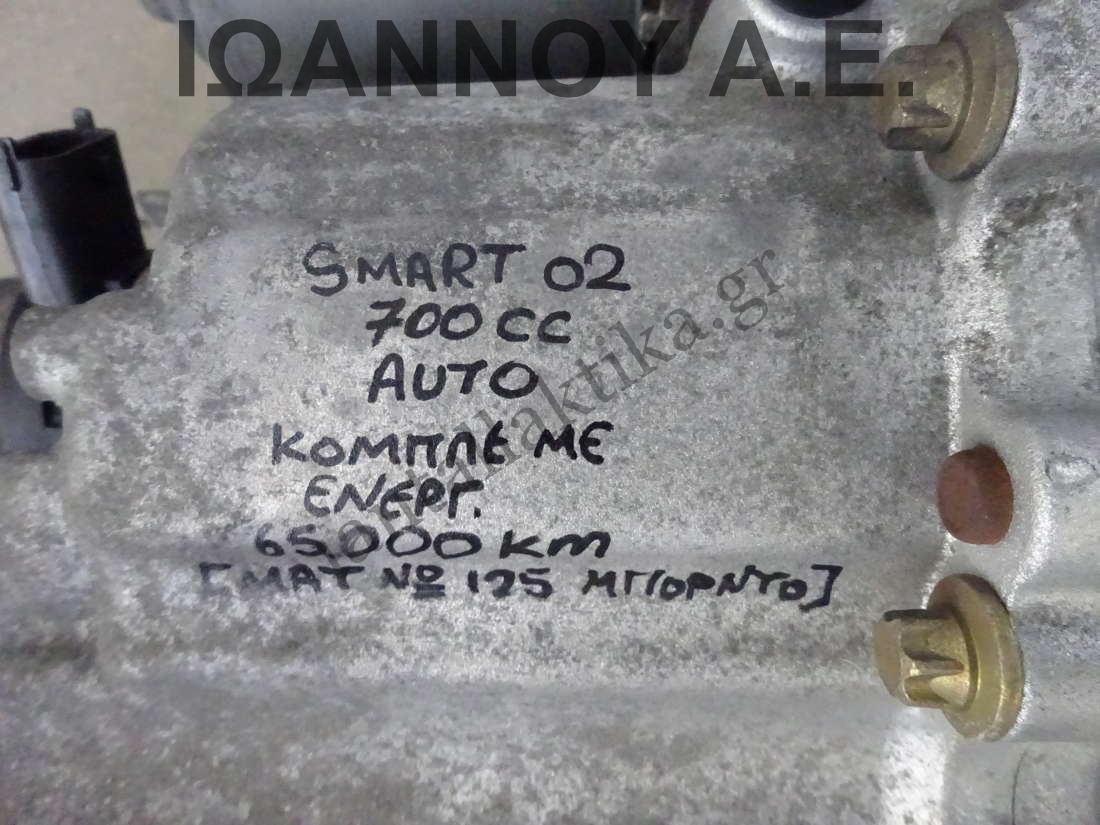 ΙΩΑΝΝΟΥ Α.Ε.
SMART 02
700 CC
AUTO
ΚΟΜΠΛΕ ΜΕ
ΕΝΕΡΓ.
65.000 KM
[ΜΑΤ Νº 125 ΜΠΟΡΝΤΟ]